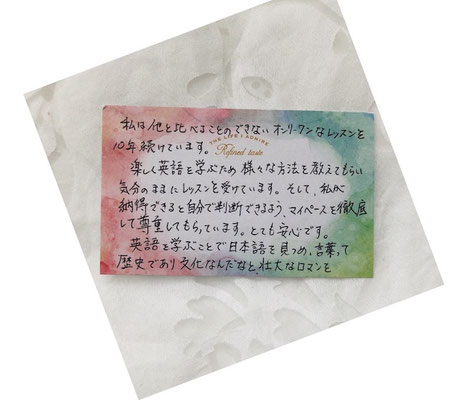 私は他と比べることのできない オンリーワンなレッスンを
10年続けています。
THE LIFE I ADMIRE
Refined taste
楽しく英語を学ぶため 様々な方法を教えてもらい
気分のままにレッスンを受けています。そして、私が
納得できると自分で判断できるよう、マイペースを徹底
して尊重してもらっています。とても安心です。
英語を学ぶことで日本語を見つめ、言葉って
歴史であり文化なんだなと壮大なロマンを